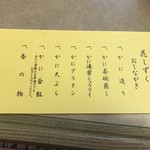 花しずく
おしながき
一、かに造り
一、かに茶碗蒸し
一、かに湯葉しゅうまい
一、かにグラタン
一、かに天ぷら
一、かに釜飯
一、香の物